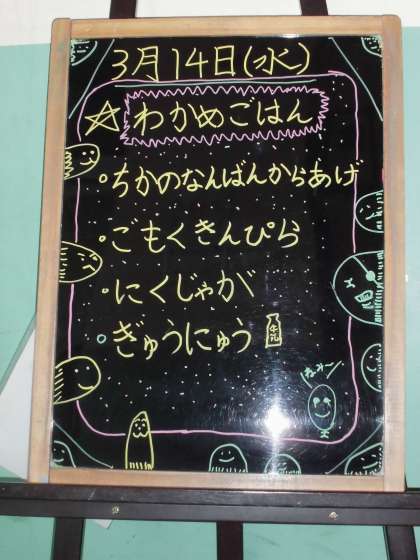 3月14日(水)
☆わかめごはん
・ちかのなんばんからあげ
・ごもくきんぴら
・にくじゃが
・ぎゅうにゅう 牛乳